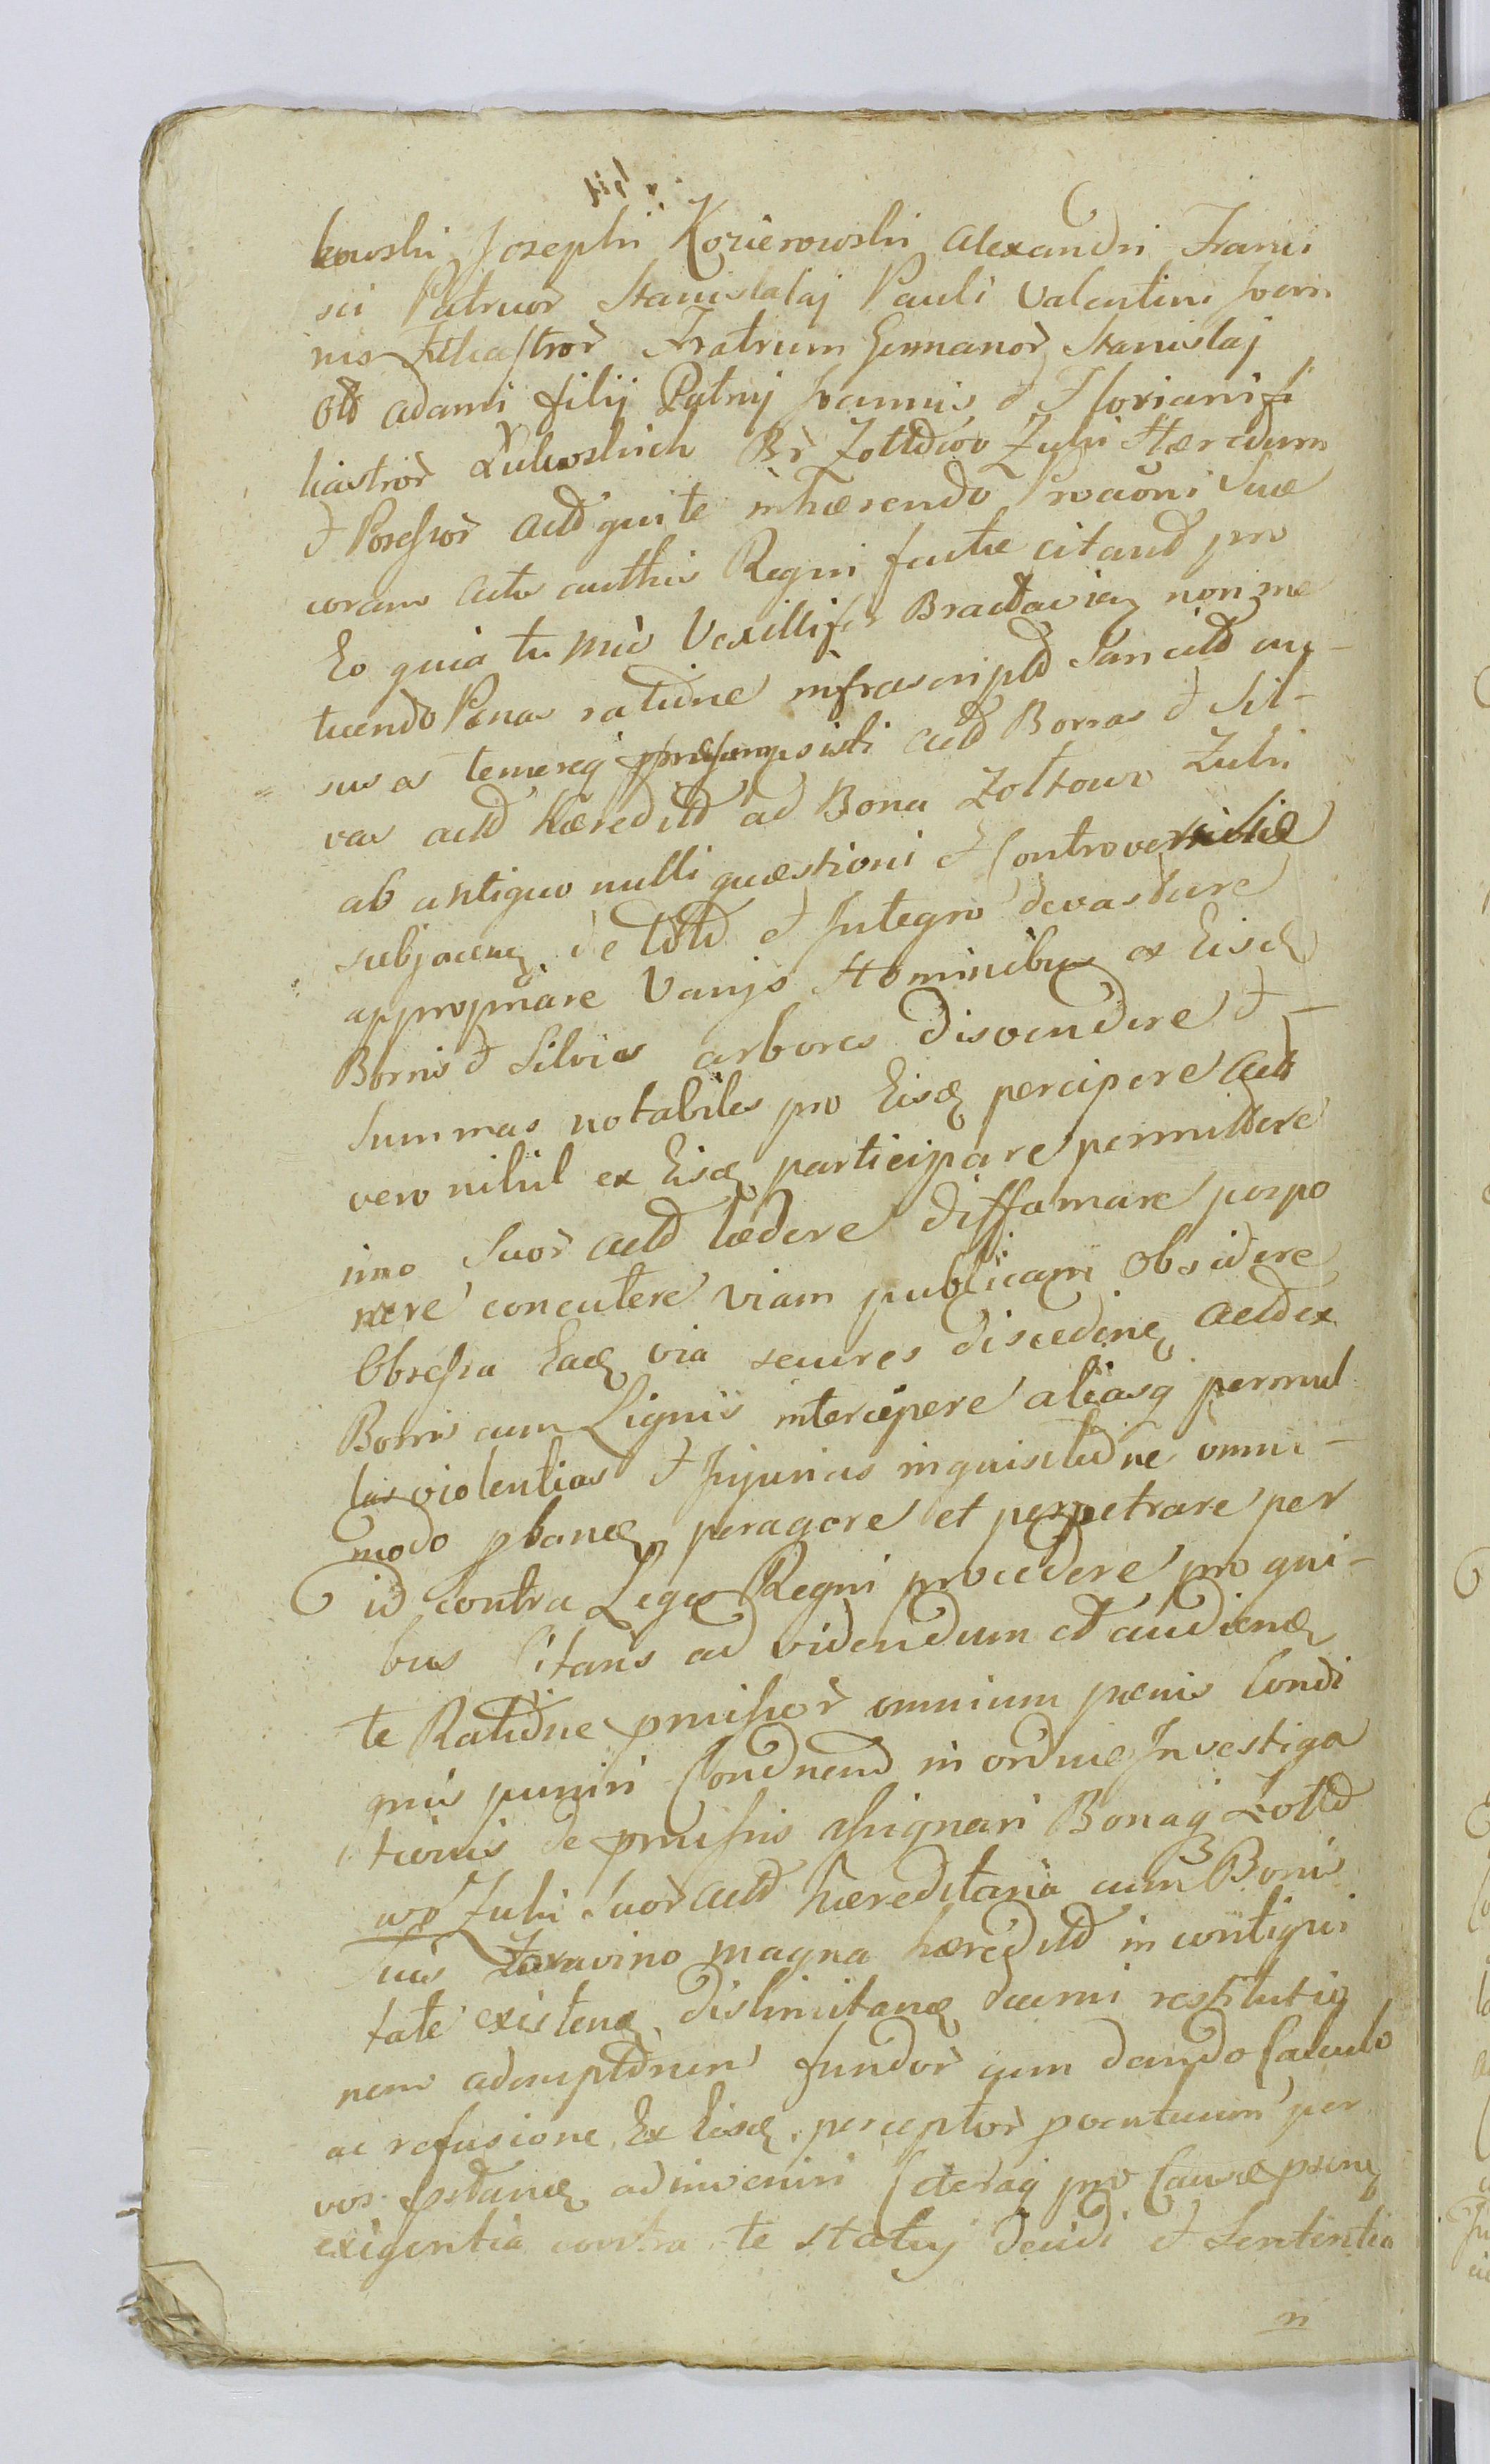 kowski Josephi Kozierowski Alexandri Franci
sci Patruor Stanislai Pauli Valentini Joan
nis Filiastror Fratrum Germanor Stanislaj
Adami filij Patruj Joannis et Floriani fi
liastror Żukowskich Br Zołtkow Żuki Hæredum
et Possessor Actt qui te inhærendo Prõtaõni Suæ
coram Actis authis Regni factæ citant pro
Eo quia tu Mtus Vexillifer Bractaviæ non me
tuendo Pænas ratiõne infrascriptt Sancitt au
sus es temereq præsumpsisti actt Borras et Sil
vas actt hæreditt ad Bona Zołtowo Żuki
ab antiquo nulli quæstioni et Controversiæ
subjacenẽ de toto et Integro devastare
appropriare Varijs Hominibus ex Eisdẽ
Borris et Silvis arbores disvendere et
Summas notabiles pro Eisdẽ percipere actt
vero nihil ex Eisdẽ participare permittere
imo Suor actt lædere diffamare perpo
nere concutere viam publicam obsidere
Obsessa Eadẽ via secures discedenẽ actt ex
Borris cum Lignis intercipere aliasq permul
tas violentias et Injurias in quisitiõne omni
modo pbanẽ peragere et perpetrare per
id contra Leges Regni procedere pro qui
bus Citaris ad videndum et audienẽ
te Ratiõne pmissor omnium pænis Condi
gnis puniri Condnenđ in ordine Investiga
tionis de pmissis assignari Bonaq Zołtt
wo Żuki Suor actt hæreditaria cum Bonis
Tuis magna hæreditt in contigui
tate existenẽ dislimitanẽ decerni restitutio
nem adeptiõnem fundor cum dando Calculo
ac refusione Ex Eisdẽ perceptor pventuum per
vos pstanẽ adinveniri Cæteraq pro Causæ psenẽ
exigentia contra te statuj decidi et Sententia
ri